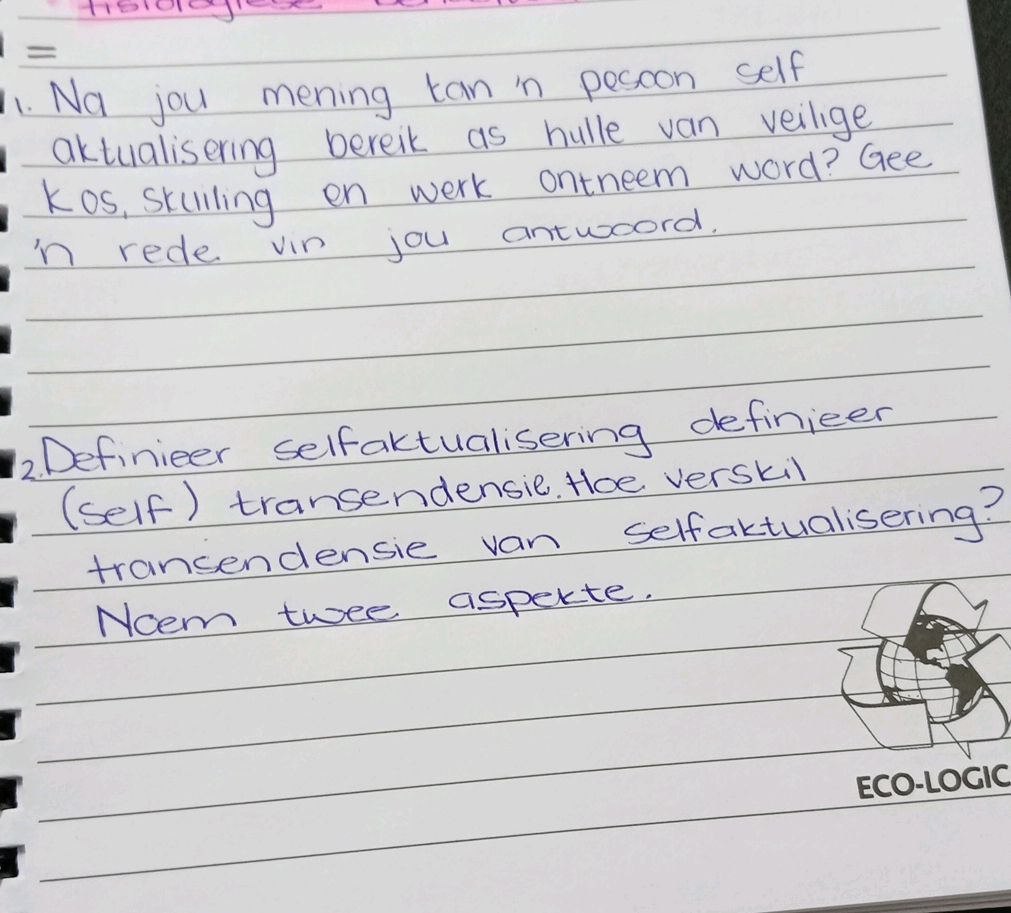 =
1. Na jou mening kan 'n pesoon self
aktualisering bereik as hulle van veilige
kos, skuiling en werk ontneem word? Gee
'n rede vir jou antwoord.
2. Definieer selfaktualisering definieer
(self) transendensie. Hoe verskil
transendensie van selfaktualisering?
Noem twee aspekte.
ECO-LOGIC